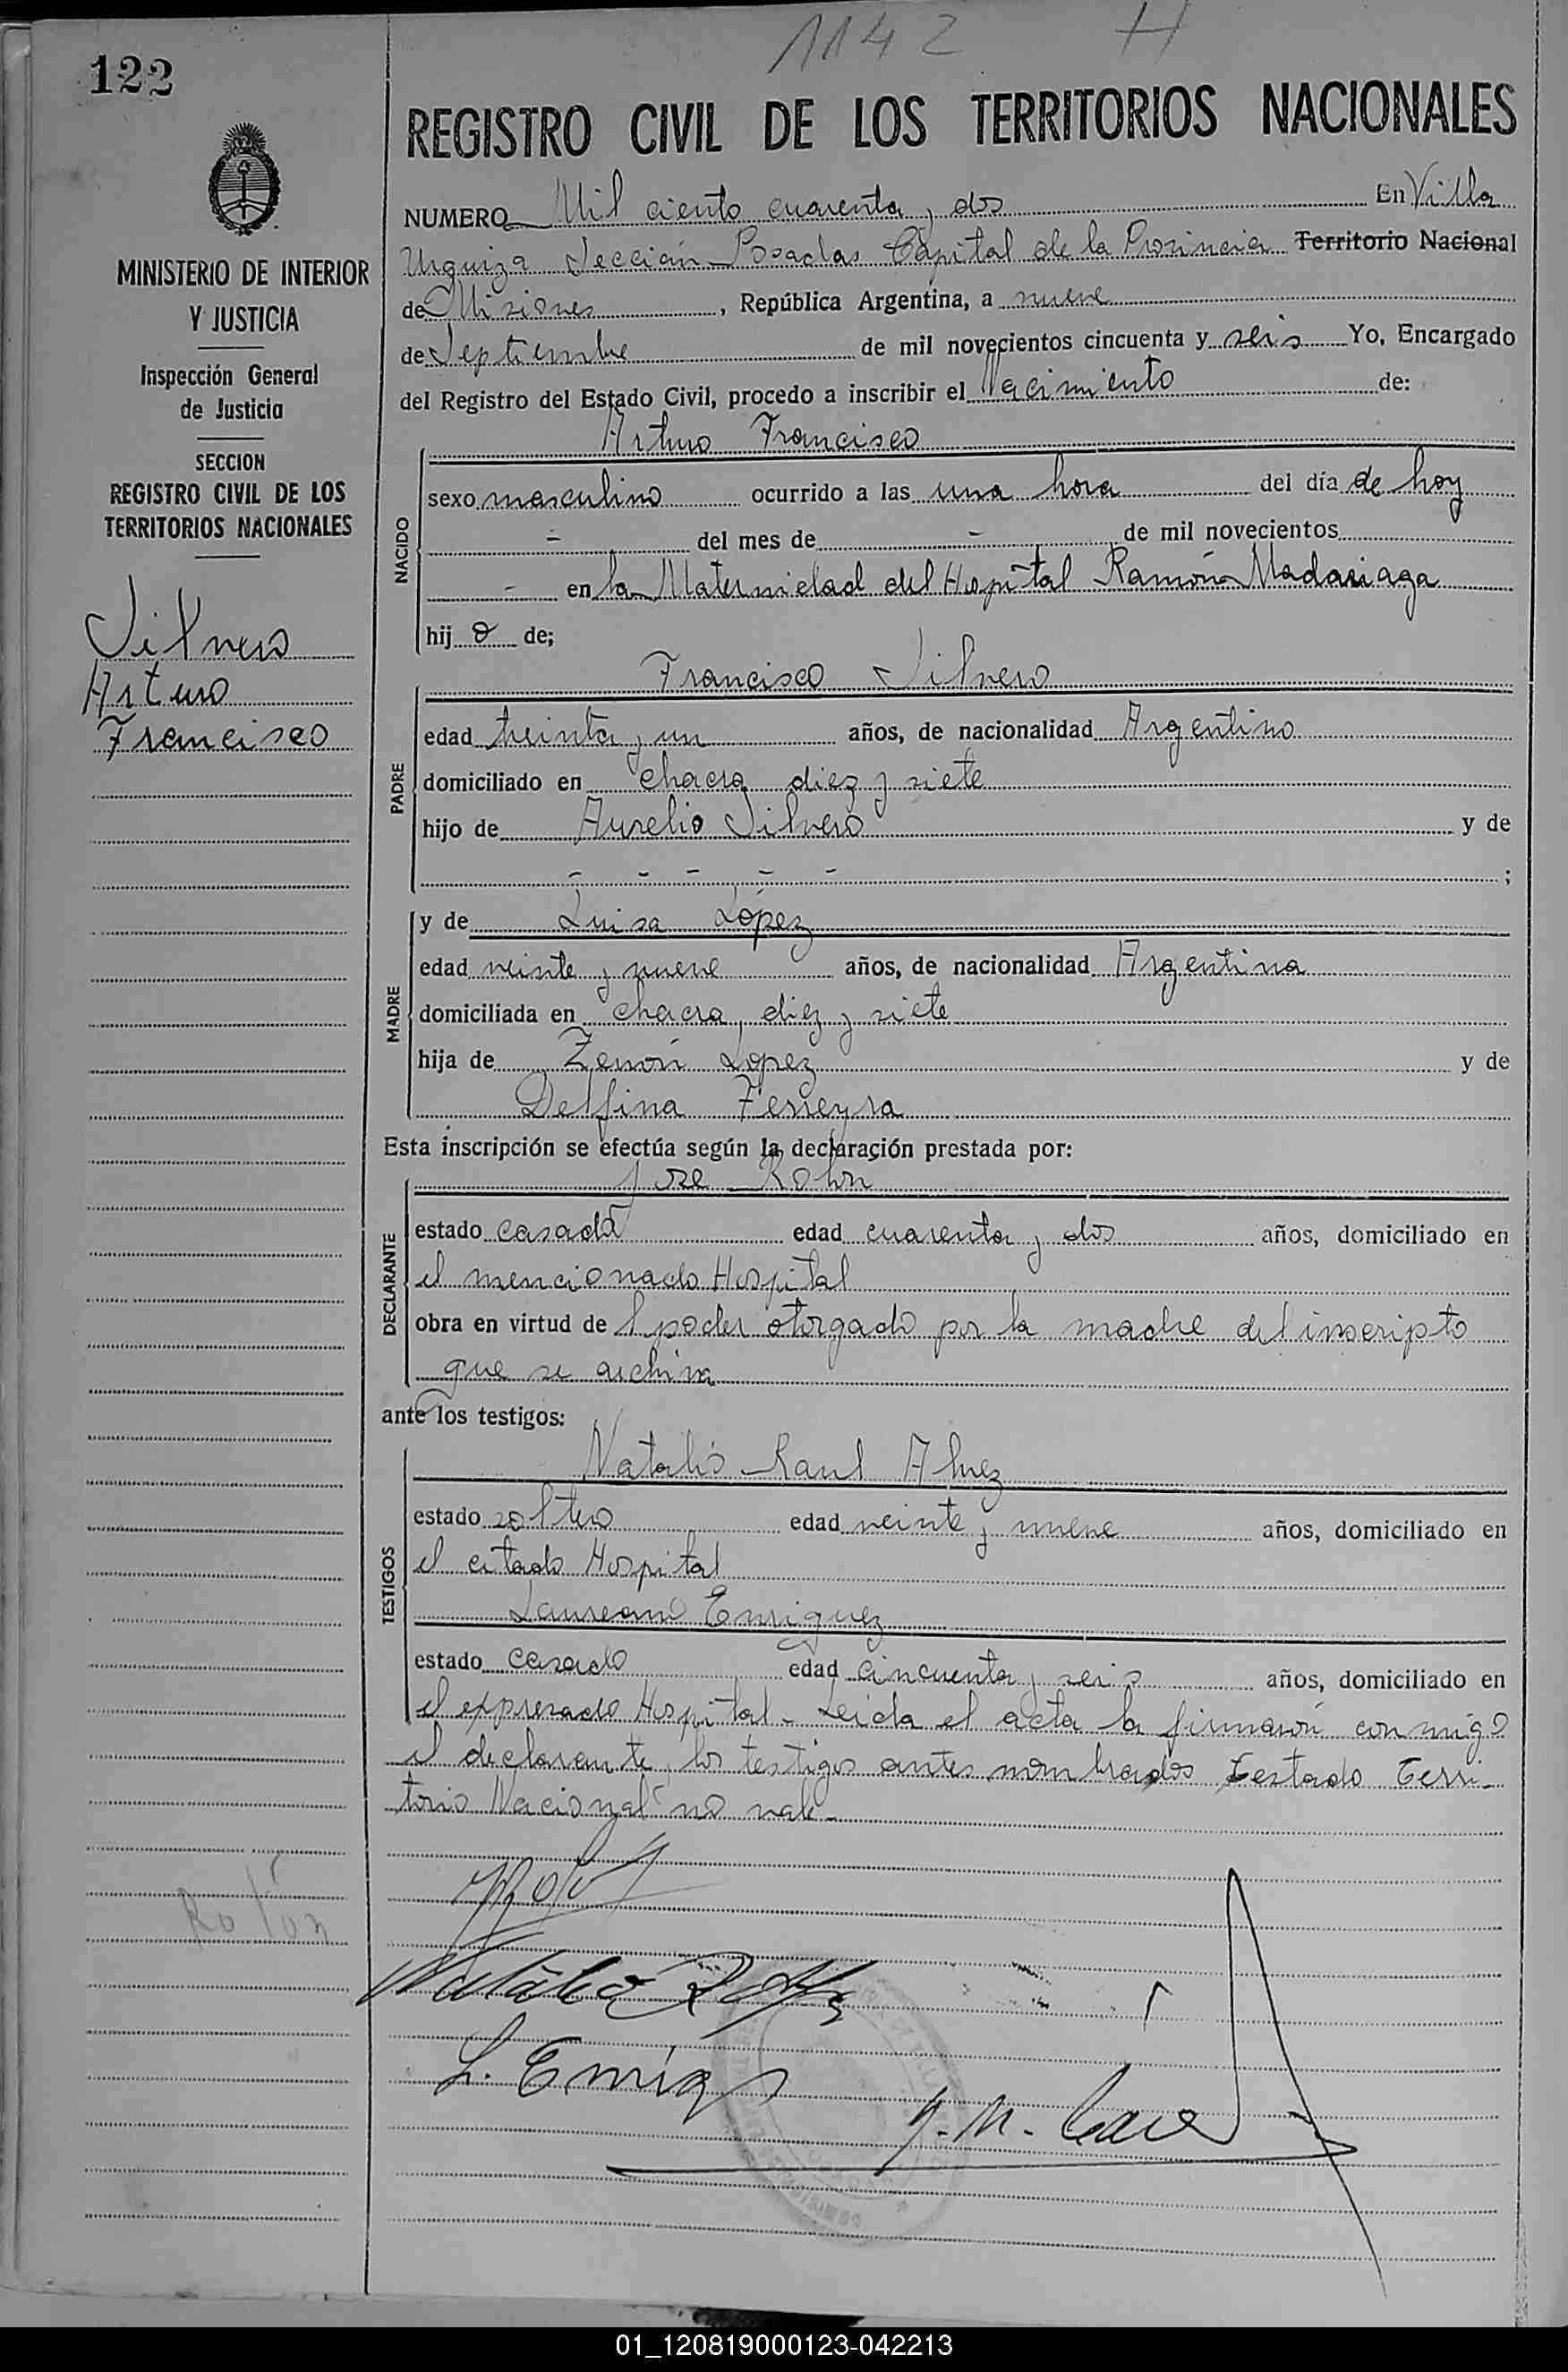 1142 H
122
REGISTRO CIVIL DE LOS TERRITORIOS NACIONALES
MINISTERIO DE INTERIOR
Y JUSTICIA
Inspección General
de Justicia
SECCION
REGISTRO CIVIL DE LOS
TERRITORIOS NACIONALES
Silvero
Arturo
Francisco
NUMERO Mil ciento cuarenta y dos En Villa
Urquiza Sección Posadas Capital de la Provincia Territorio Nacional
de Misiones, República Argentina, a nueve
de Septiembre de mil novecientos cincuenta y seis Yo, Encargado
del Registro del Estado Civil, procedo a inscribir el Nacimiento de:
Arturo Francisco
NACIDO
sexo masculino ocurrido a las una hora del día de hoy
- del mes de - de mil novecientos
- en la Maternidad del Hospital Ramón Madariaga
hij o de;
Francisco Silvero
PADRE
edad treinta y un años, de nacionalidad Argentino
domiciliado en chacra diez y siete
hijo de Aurelio Silvero y de
- - - - - ;
MADRE
y de Luisa López
edad veinte y nueve años, de nacionalidad Argentina
domiciliada en chacra diez y siete
hija de Zenón López y de
Delfina Ferreyra
Esta inscripción se efectúa según la declaración prestada por:
José Rohn
DECLARANTE
estado casado edad cuarenta y dos años, domiciliado en
el mencionado Hospital
obra en virtud de l poder otorgado por la madre del inscripto
que se archiva
ante los testigos:
Natalio Raul Alvez
TESTIGOS
estado soltero edad veinte y nueve años, domiciliado en
el citado Hospital
Laureano Enriquez
estado casado edad cincuenta y seis años, domiciliado en
el expresado Hospital - Leida el acta la firmaron conmigo
el declarante y los testigos antes nombrados Testado Terri-
torio Nacional no vale -
Rolón
L. Enriq
01_120819000123-042213